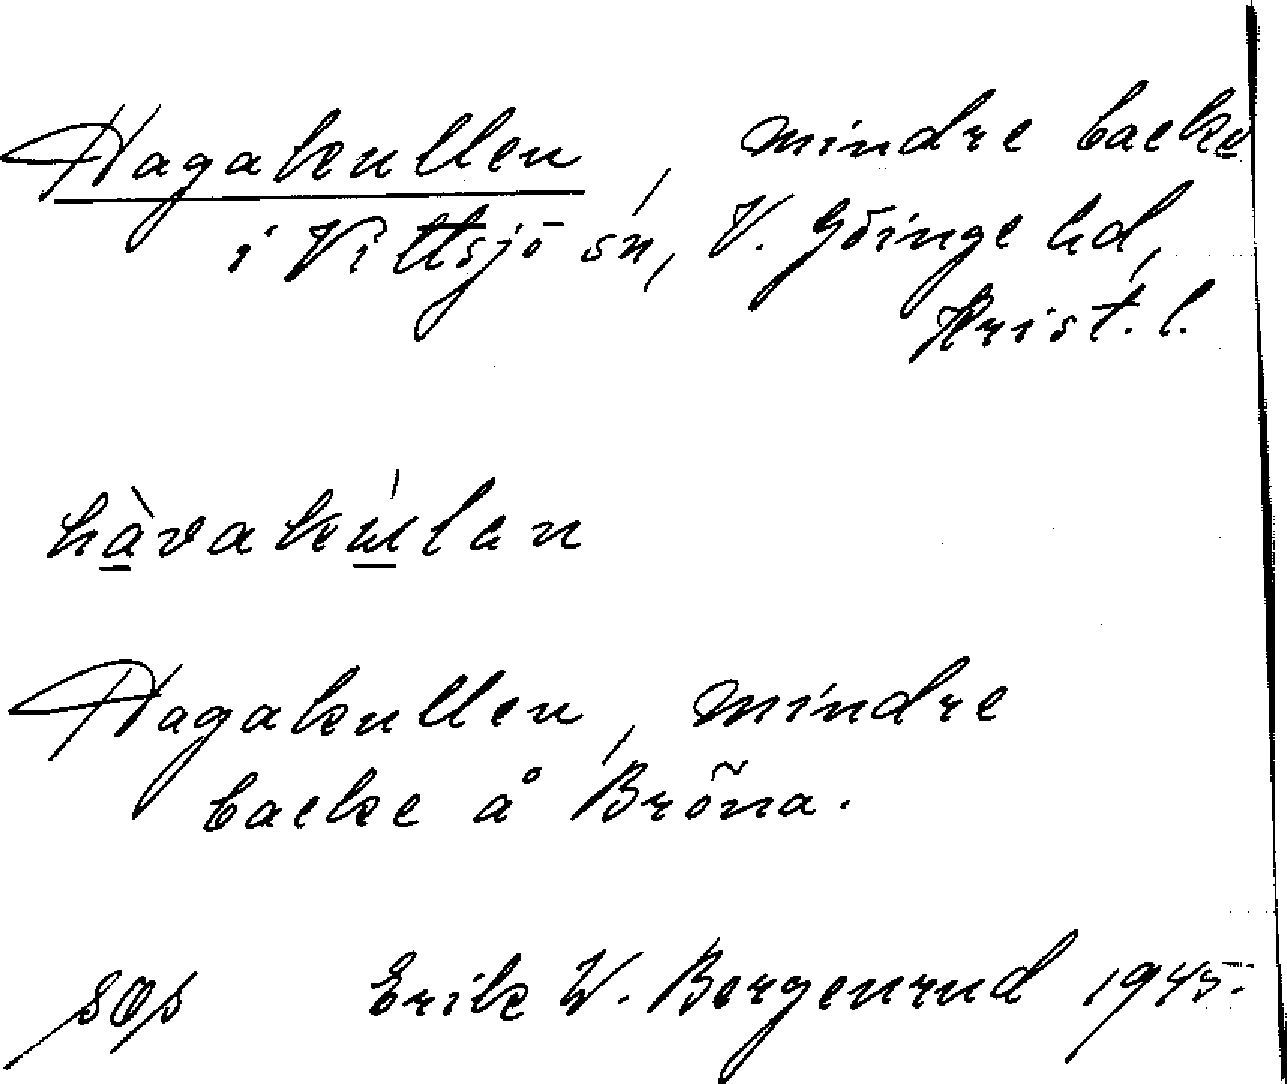 Hagakullen, mindre backe
i Vittsjö sn, V. Göinge hd,
Krist. l.
hàvakúlan
Hagakullen, mindre
backe å Bröna.
Erik W. Bergenrud 1945.